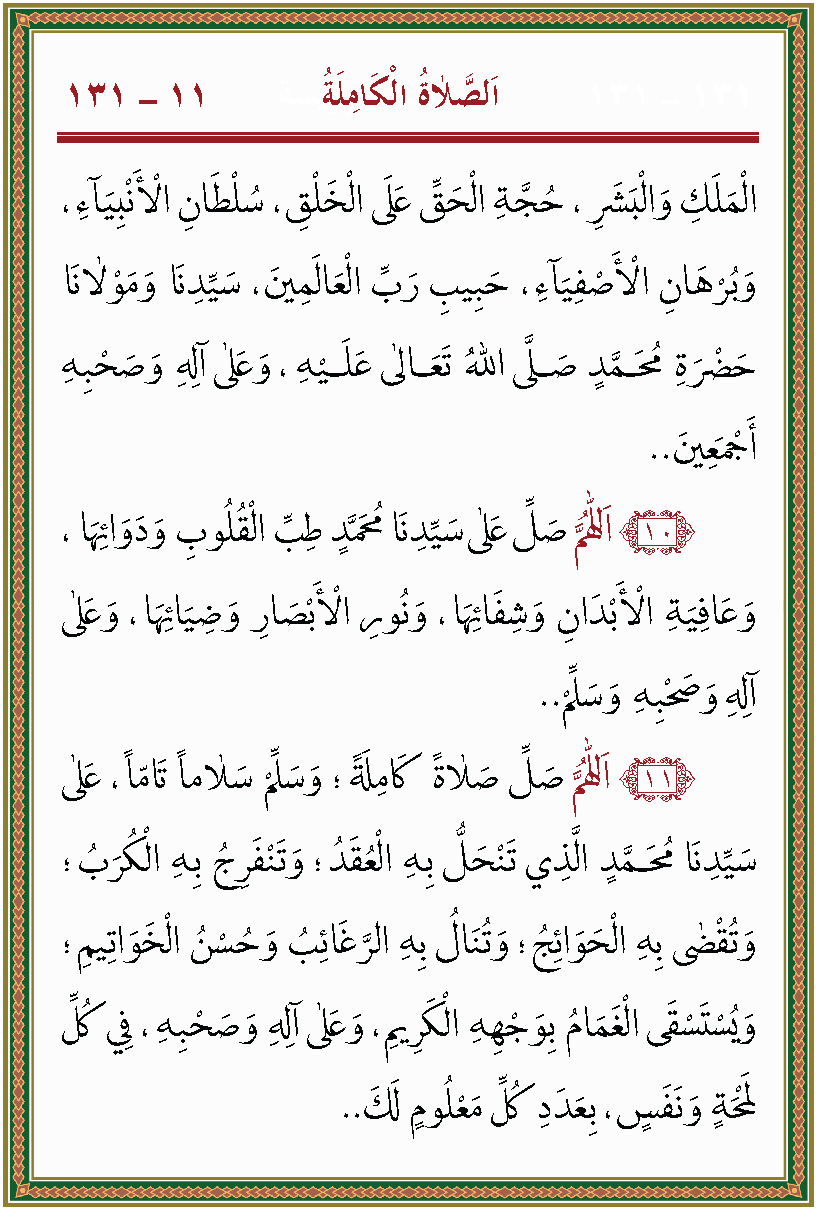 اَلصَّلَاةُ الْكَامِلَةُ ١١ – ١٣١
الْمَلَكِ وَالْبَشَرِ ، حُجَّةِ الْحَقِّ عَلَى الْخَلْقِ ، سُلْطَانِ الْأَنْبِيَآءِ ،
وَبُرْهَانِ الْأَصْفِيَآءِ ، حَبِيبِ رَبِّ الْعَالَمِينَ ، سَيِّدِنَا وَمَوْلَانَا
حَضْرَةِ مُحَمَّدٍ صَلَّى اللهُ تَعَالٰى عَلَيْهِ ، وَعَلٰى آلِهِ وَصَحْبِهِ
أَجْمَعِينَ..
﴿١٠﴾ اَللّٰهُمَّ صَلِّ عَلٰى سَيِّدِنَا مُحَمَّدٍ طِبِّ الْقُلُوبِ وَدَوَائِهَا ،
وَعَافِيَةِ الْأَبْدَانِ وَشِفَائِهَا ، وَنُورِ الْأَبْصَارِ وَضِيَائِهَا ، وَعَلٰى
آلِهِ وَصَحْبِهِ وَسَلِّمْ..
﴿١١﴾ اَللّٰهُمَّ صَلِّ صَلَاةً كَامِلَةً ؛ وَسَلِّمْ سَلَاماً تَامّاً ، عَلٰى
سَيِّدِنَا مُحَمَّدٍ الَّذِي تَنْحَلُّ بِهِ الْعُقَدُ ؛ وَتَنْفَرِجُ بِهِ الْكُرَبُ ؛
وَتُقْضٰى بِهِ الْحَوَائِجُ ؛ وَتُنَالُ بِهِ الرَّغَائِبُ وَحُسْنُ الْخَوَاتِيمِ ؛
وَيُسْتَسْقَى الْغَمَامُ بِوَجْهِهِ الْكَرِيمِ ، وَعَلٰى آلِهِ وَصَحْبِهِ ، فِي كُلِّ
لَمْحَةٍ وَنَفَسٍ ، بِعَدَدِ كُلِّ مَعْلُومٍ لَكَ..